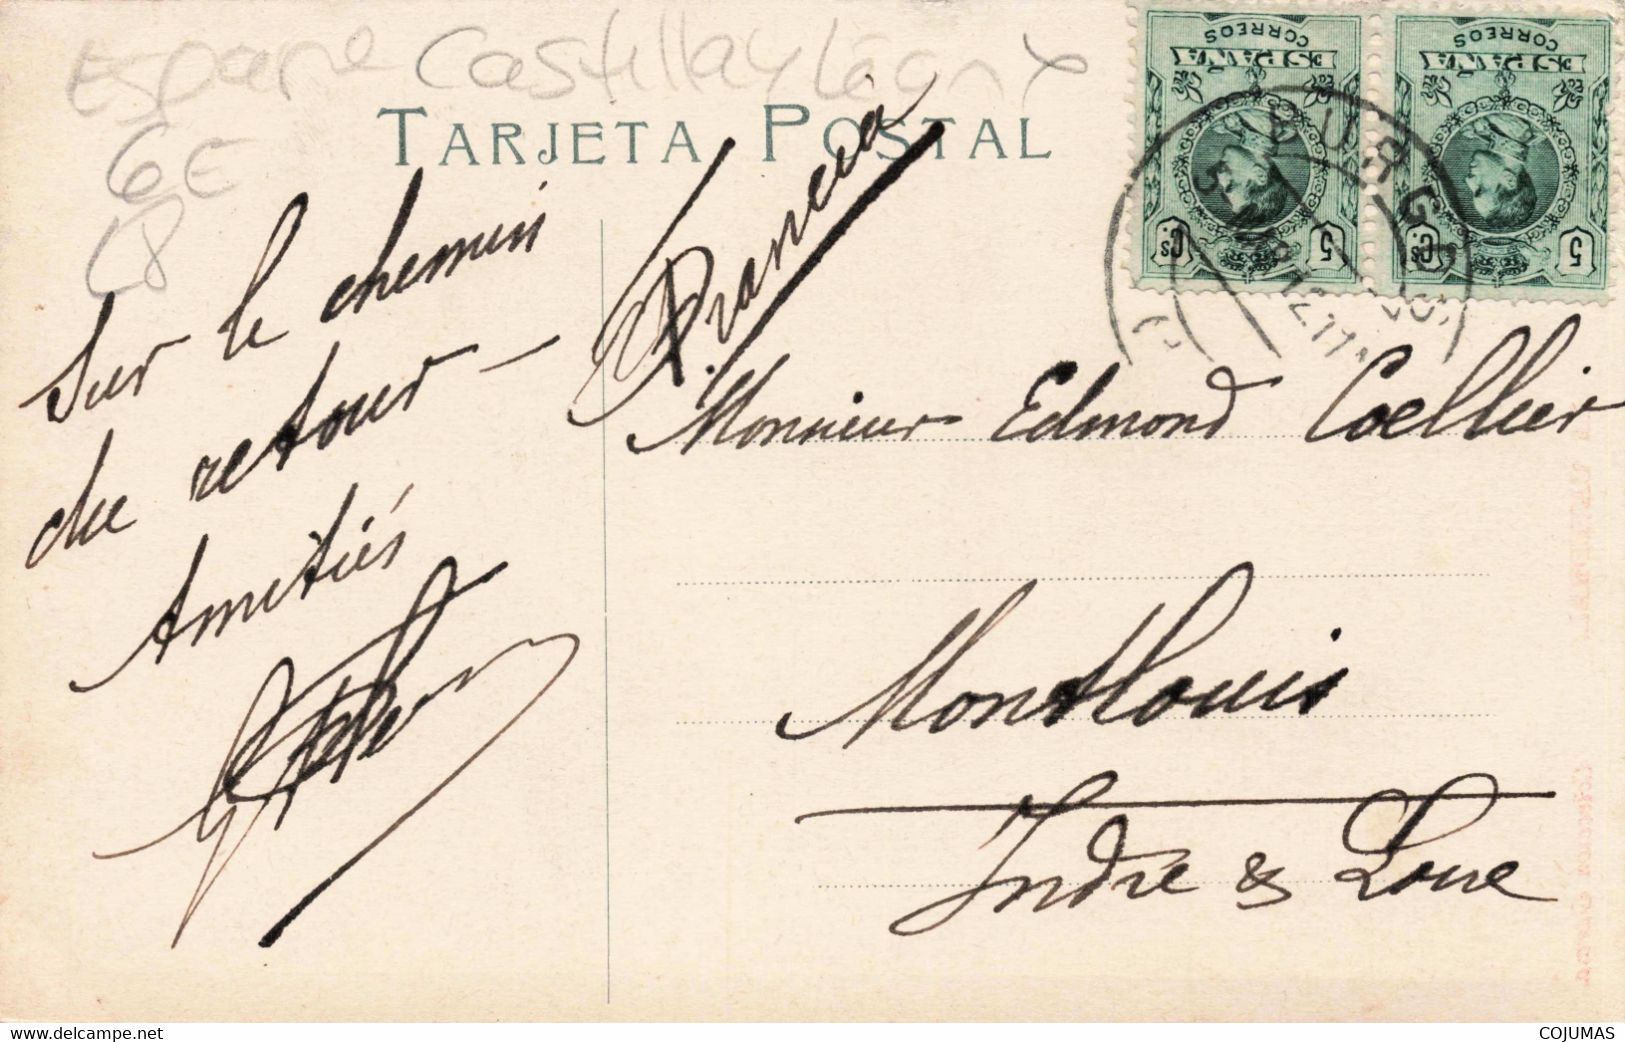 Espagne Castilla y Léon
6E
C8
TARJETA POSTAL
CORREOS
ESPAÑA
5 Cs
CORREOS
ESPAÑA
5 Cs
BURGOS
Francia
Sur le chemin
du retour –
Amitiés
Monsieur Edmond Coellier
Montlouis
Indre & Loire
COJUMAS